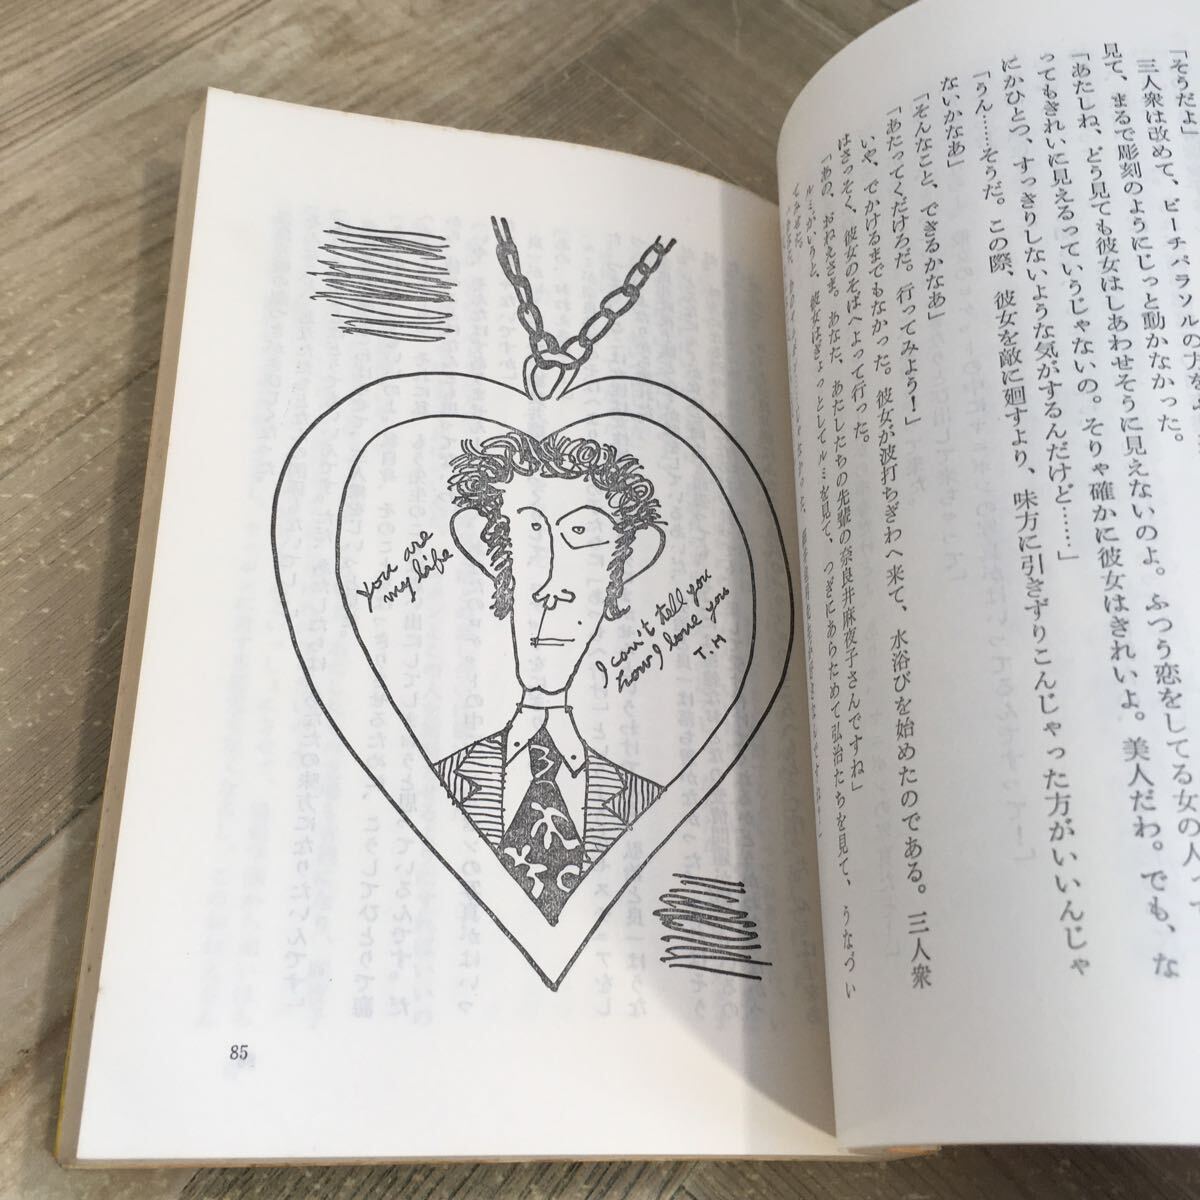 「そうだよ」
三人衆は改めて、ビーチパラソルの方を
見て、まるで彫刻のようにじっと動かなかった。
「あたしね、どう見ても彼女はしあわせそうに見えないのよ。ふつう恋をしてる女の人って
ってもきれいに見えるっていうじゃないの。そりゃ確かに彼女はきれいよ。美人だわ。でも、な
にかひとつ、すっきりしないような気がするんだけど……」
「うん……そうだ。この際、彼女を敵に廻すより、味方に引きずりこんじゃった方がいいんじゃ
ないかなあ」
「そんなこと、できるかなあ」
「あたってくだけろだ。行ってみよう！」
いや、でかけるまでもなかった。彼女が波打ちぎわへ来て、水浴びを始めたのである。三人衆
はさっそく、彼女のそばへよって行った。
「あの、おねえさま。あなた、あたしたちの先輩の奈良井麻夜子さんですね」
ルミがいうと、彼女はぎょっとしてルミを見て、つぎにあらためて弘治たちを見て、うなづい
てみせた。
You are
my life
I can't tell you
how I love you
T.M
85